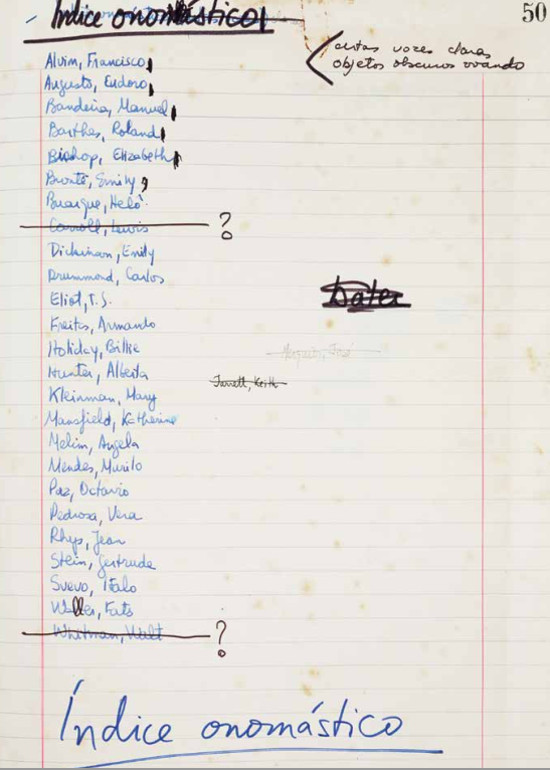 Índice onomástico
50
estas vozes claras
objetos obscuros voando
Alvim, Francisco
Augusto, Eudoro
Bandeira, Manuel
Barthes, Roland
Bishop, Elizabeth
Brontë, Emily
Buarque, Helô
Carroll, Lewis ?
Dickinson, Emily
Drummond, Carlos
Eliot, T.S.
Freitas, Armando
Holiday, Billie
Hunter, Alberta
Jarrett, Keith
Kleinman, Mary
Mansfield, Katherine
Melim, Angela
Mendes, Murilo
Paz, Octavio
Pedrosa, Vera
Rhys, Jean
Stein, Gertrude
Svevo, Italo
Waller, Fats
Whitman, Walt ?
Índice onomástico